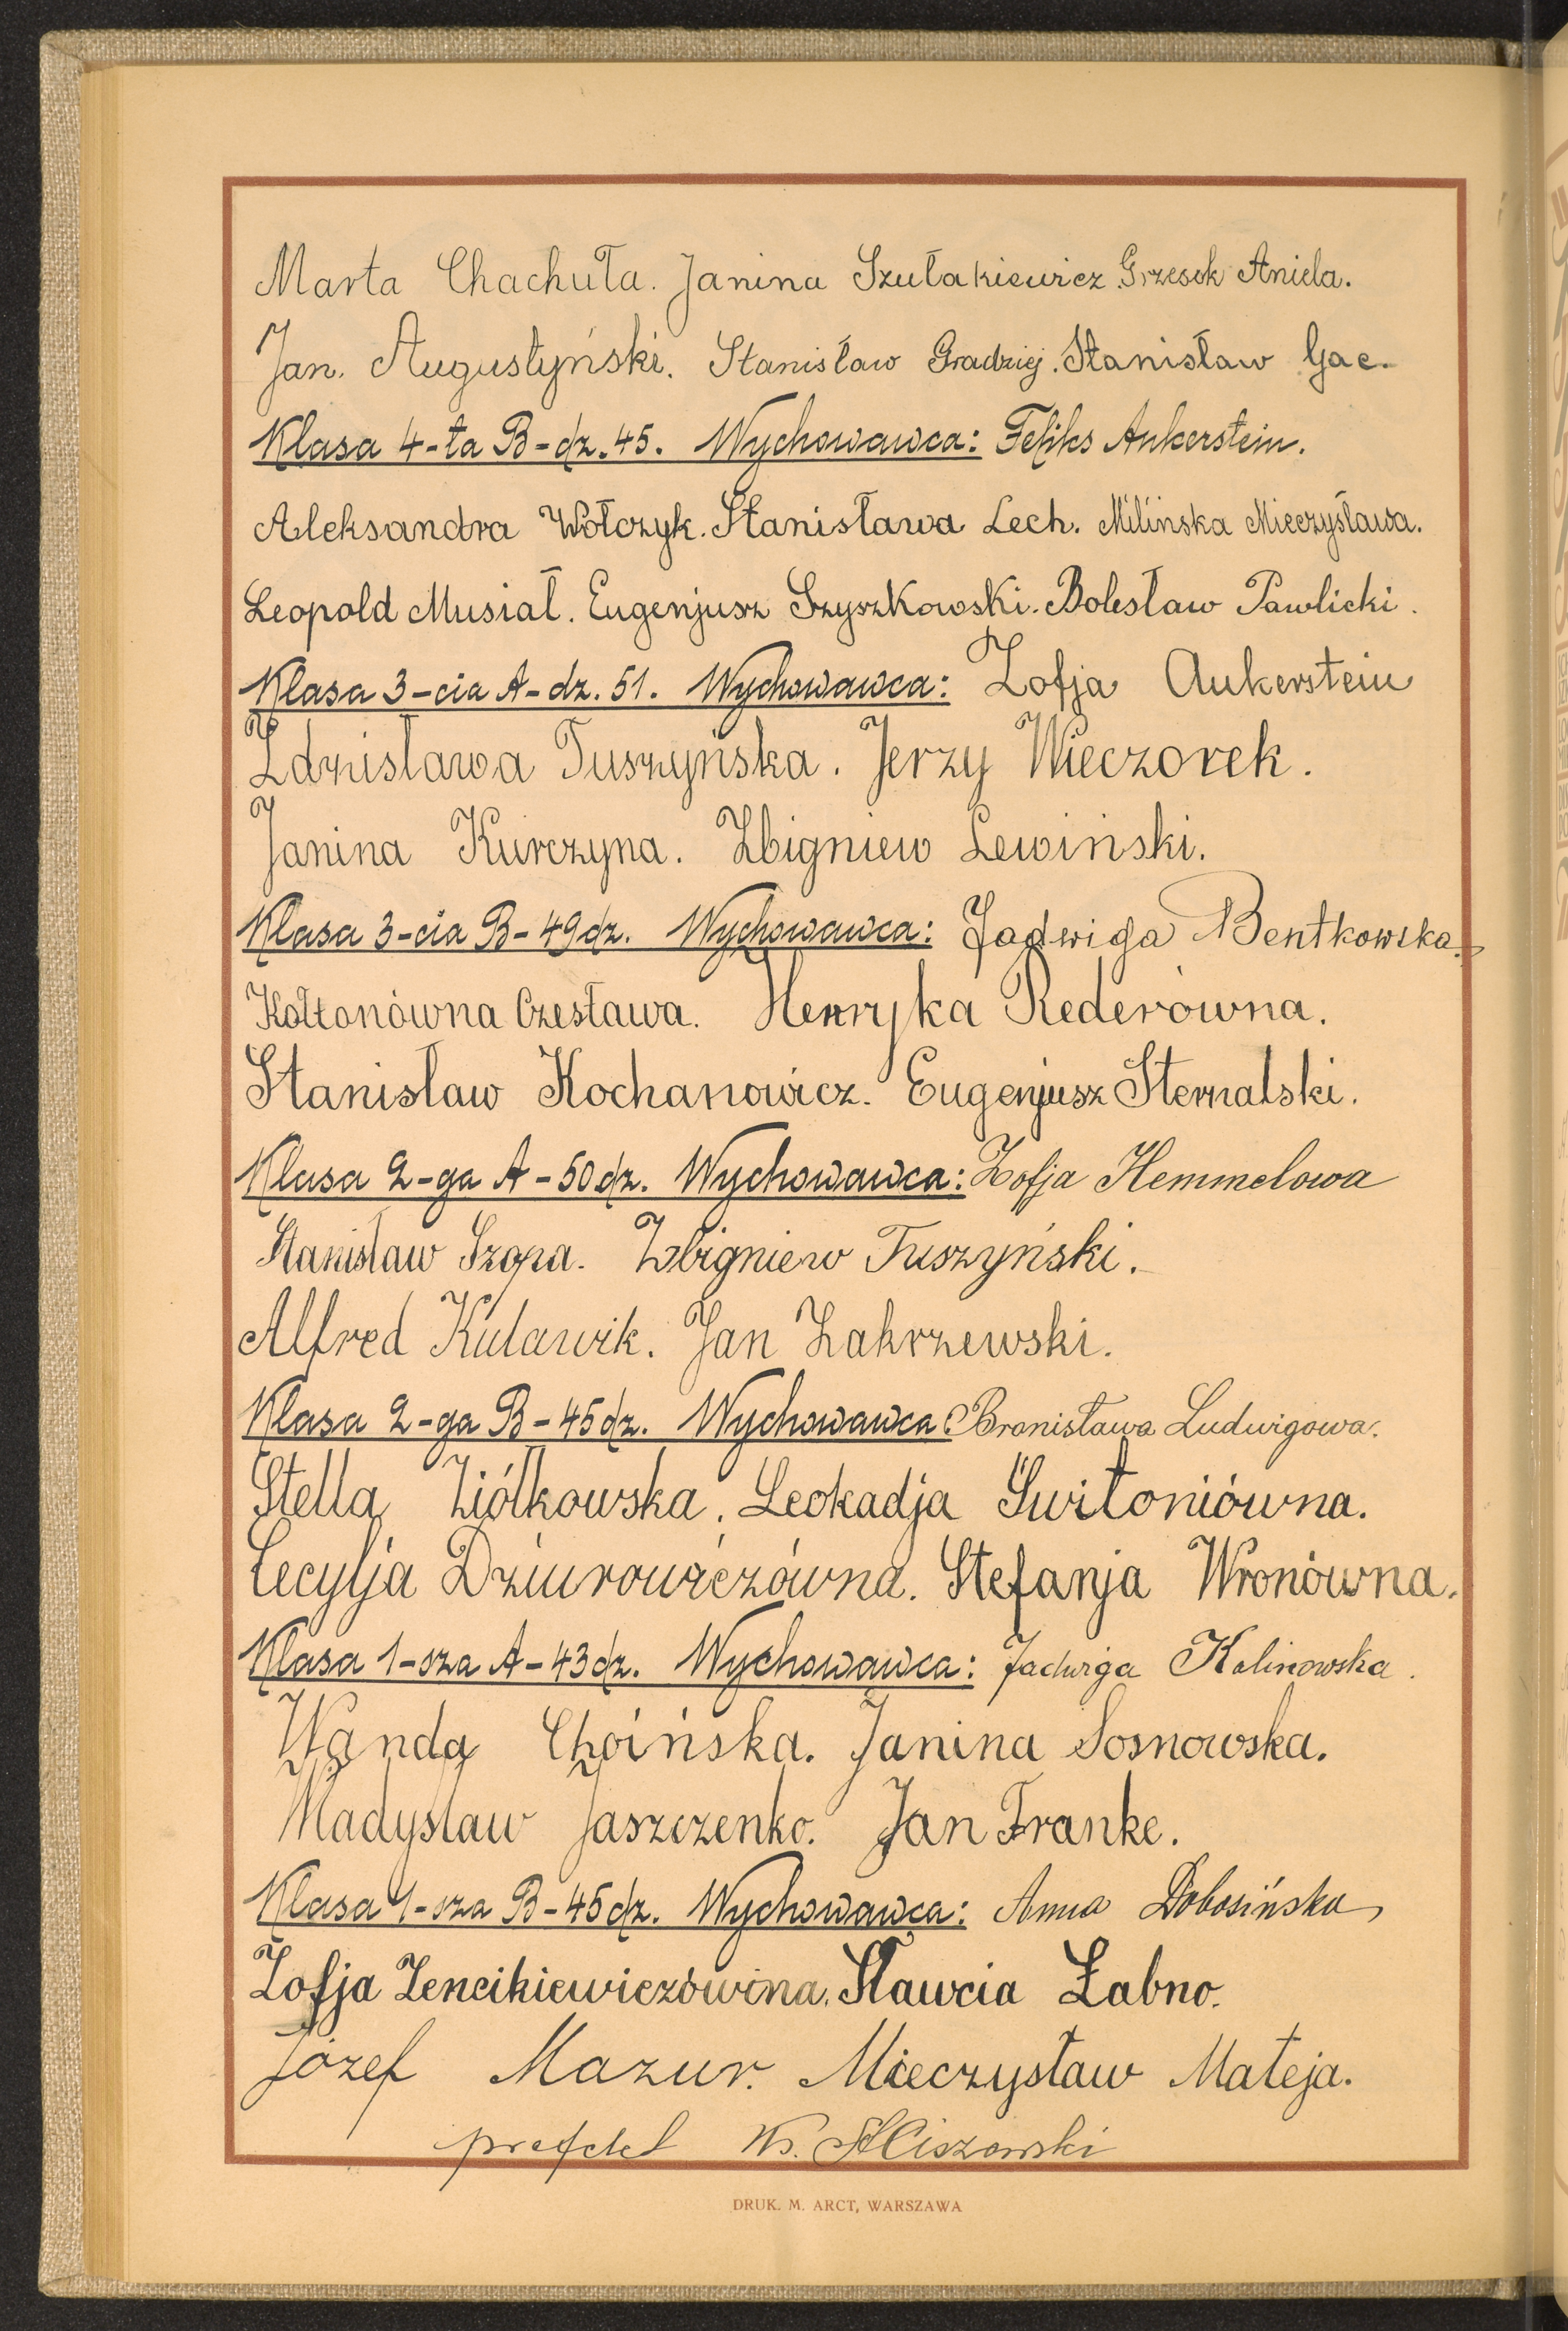 Marta Chachuła. Janina Szułakiewicz. Grzesok Aniela.
Jan. Augustyński. Stanisław Gradziej. Stanisław Gac.
Klasa 4-ta B-dz. 45. Wychowawca: Feliks Ankerstein.
Aleksandra Wołczyk. Stanisława Lech. Milińska Mieczysława.
Leopold Musiał. Eugenjusz Szyszkowski. Bolesław Pawlicki.
Klasa 3-cia A-dz. 51. Wychowawca: Zofja Ankerstein
Zdzisława Tuszyńska. Jerzy Wieczorek.
Janina Kurczyna. Zbigniew Lewiński.
Klasa 3-cia B-49 dz. Wychowawca: Jadwiga Bentkowska.
Kołtonówna Czesława. Henryka Rederówna.
Stanisław Kochanowicz. Eugenjusz Sternalski.
Klasa 2-ga A-50 dz. Wychowawca: Zofja Hemmelowa
Stanisław Szopa. Zbigniew Tuszyński.
Alfred Kulawik. Jan Zakrzewski.
Klasa 2-ga B-45 dz. Wychowawca: Bronisława Ludwigowa.
Stella Ziółkowska. Leokadja Świtoniówna.
Cecylja Dziurowiczówna. Stefanja Wronówna.
Klasa 1-sza A-43 dz. Wychowawca: Jadwiga Kalinowska.
Wanda Choińska. Janina Sosnowska.
Władysław Jaszczenko. Jan Franke.
Klasa 1-sza B-45 dz. Wychowawca: Anna Dobosińska
Zofja Zencikiewiczówna. Sławcia Żabno.
Józef Mazur. Mieczysław Mateja.
prefekt Ks. Ciszewski
DRUK. M. ARCT, WARSZAWA